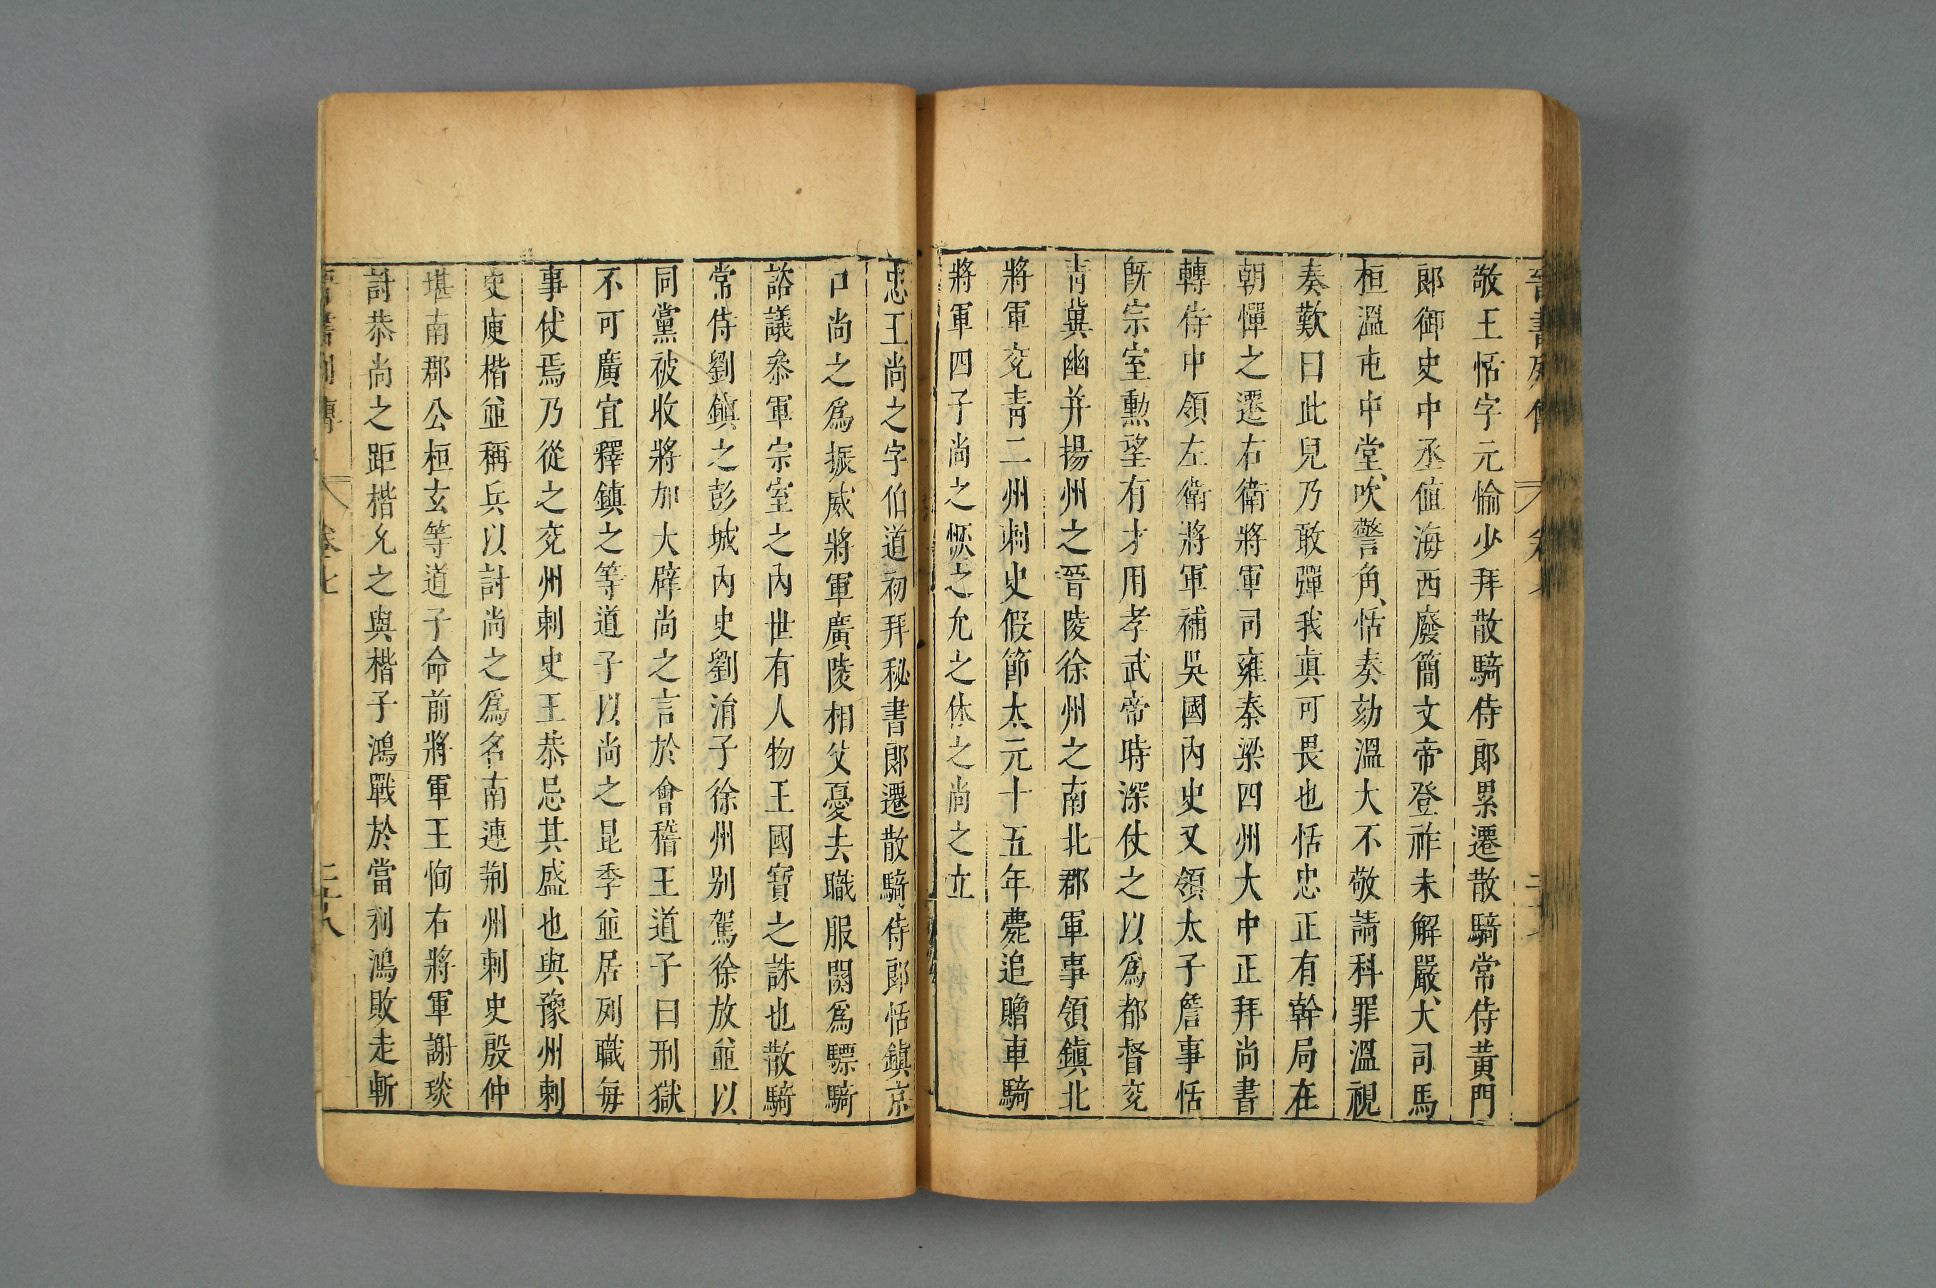 晉書列傳
敬王恬字元愉少拜散騎侍郞累遷散騎常侍黃門
郞御史中丞值海西廢簡文帝登祚未解嚴大司馬
桓溫屯中堂吹警角恬奏劾溫大不敬請科罪溫視
奏歎曰此兒乃敢彈我眞可畏也恬忠正有幹局在
朝憚之遷右衛將軍司雍秦梁四州大中正拜尚書
轉侍中領左衛將軍補吳國內史又領太子詹事恬
旣宗室勲望有才用孝武帝時深仗之以爲都督兖
青冀幽并揚州之晉陵徐州之南北郡軍事領鎮北
將軍兖青二州刺史假節太元十五年薨追贈車騎
將軍四子尚之恢之允之休之尚之立
忠王尚之字伯道初拜秘書郞遷散騎侍郞恬鎮京
口尚之爲振威將軍廣陵相父憂去職服闋爲驃騎
諮議叅軍宗室之內世有人物王國寶之誅也散騎
常侍劉鎮之彭城內史劉涓子徐州别駕徐放並以
同黨被收將加大辟尚之言於會稽王道子曰刑獄
不可廣宜釋鎮之等道子以尚之昆季並居列職每
事仗焉乃從之兖州刺史王恭忌其盛也與豫州刺
史庾楷並稱兵以討尚之爲名南連荆州刺史殷仲
堪南郡公桓玄等道子命前將軍王恂右將軍謝琰
討恭尚之距楷允之與楷子鴻戰於當利鴻敗走斬
晉書列傳 卷七